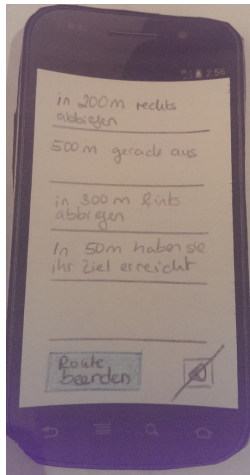 2:56
in 200m rechts
abbiegen
500m gerade aus
in 300m links
abbiegen
In 50m haben sie
ihr Ziel erreicht
Route
beenden